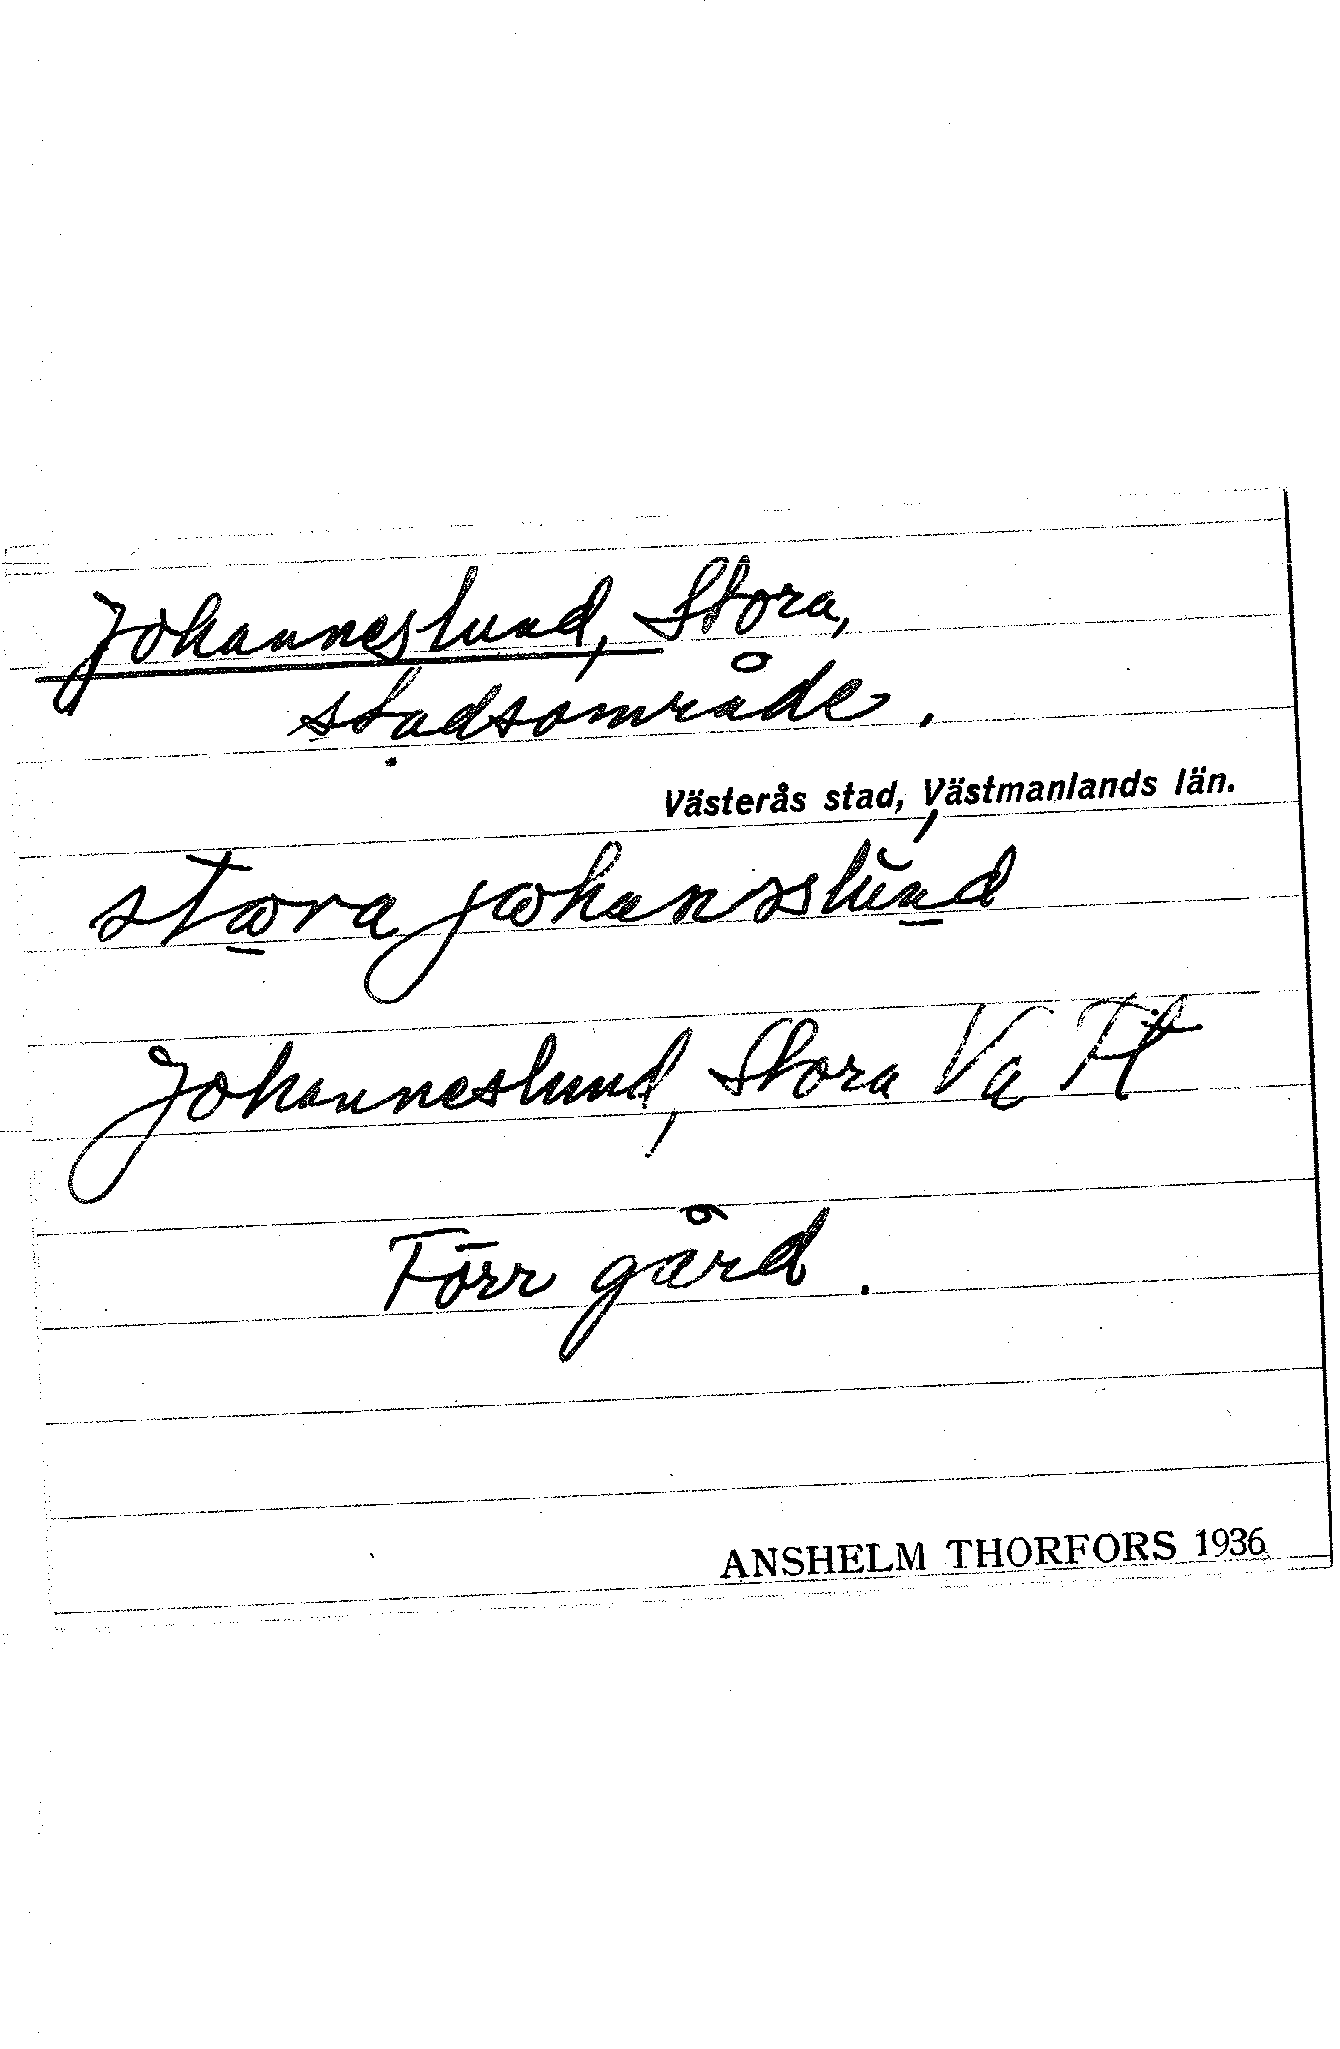 Johanneslund, Stora,
stadsområde.
Västerås stad, Västmanlands län.
stωra jωhansslund
Johanneslund, Stora Va
Förr gård.
ANSHELM THORFORS 1936